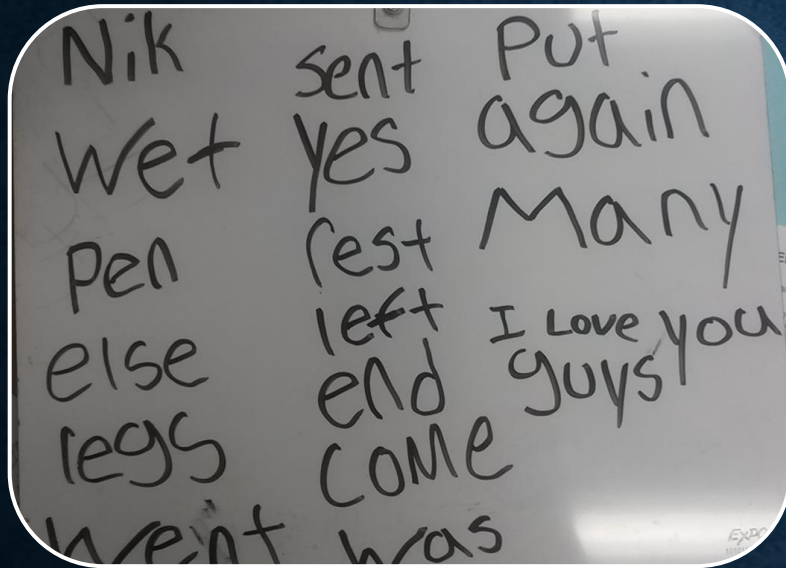 Nik
Wet
Pen
else
legs
Went
Sent
yes
rest
left
end
COMe
was
Put
again
Many
I Love you
guys
EXPO